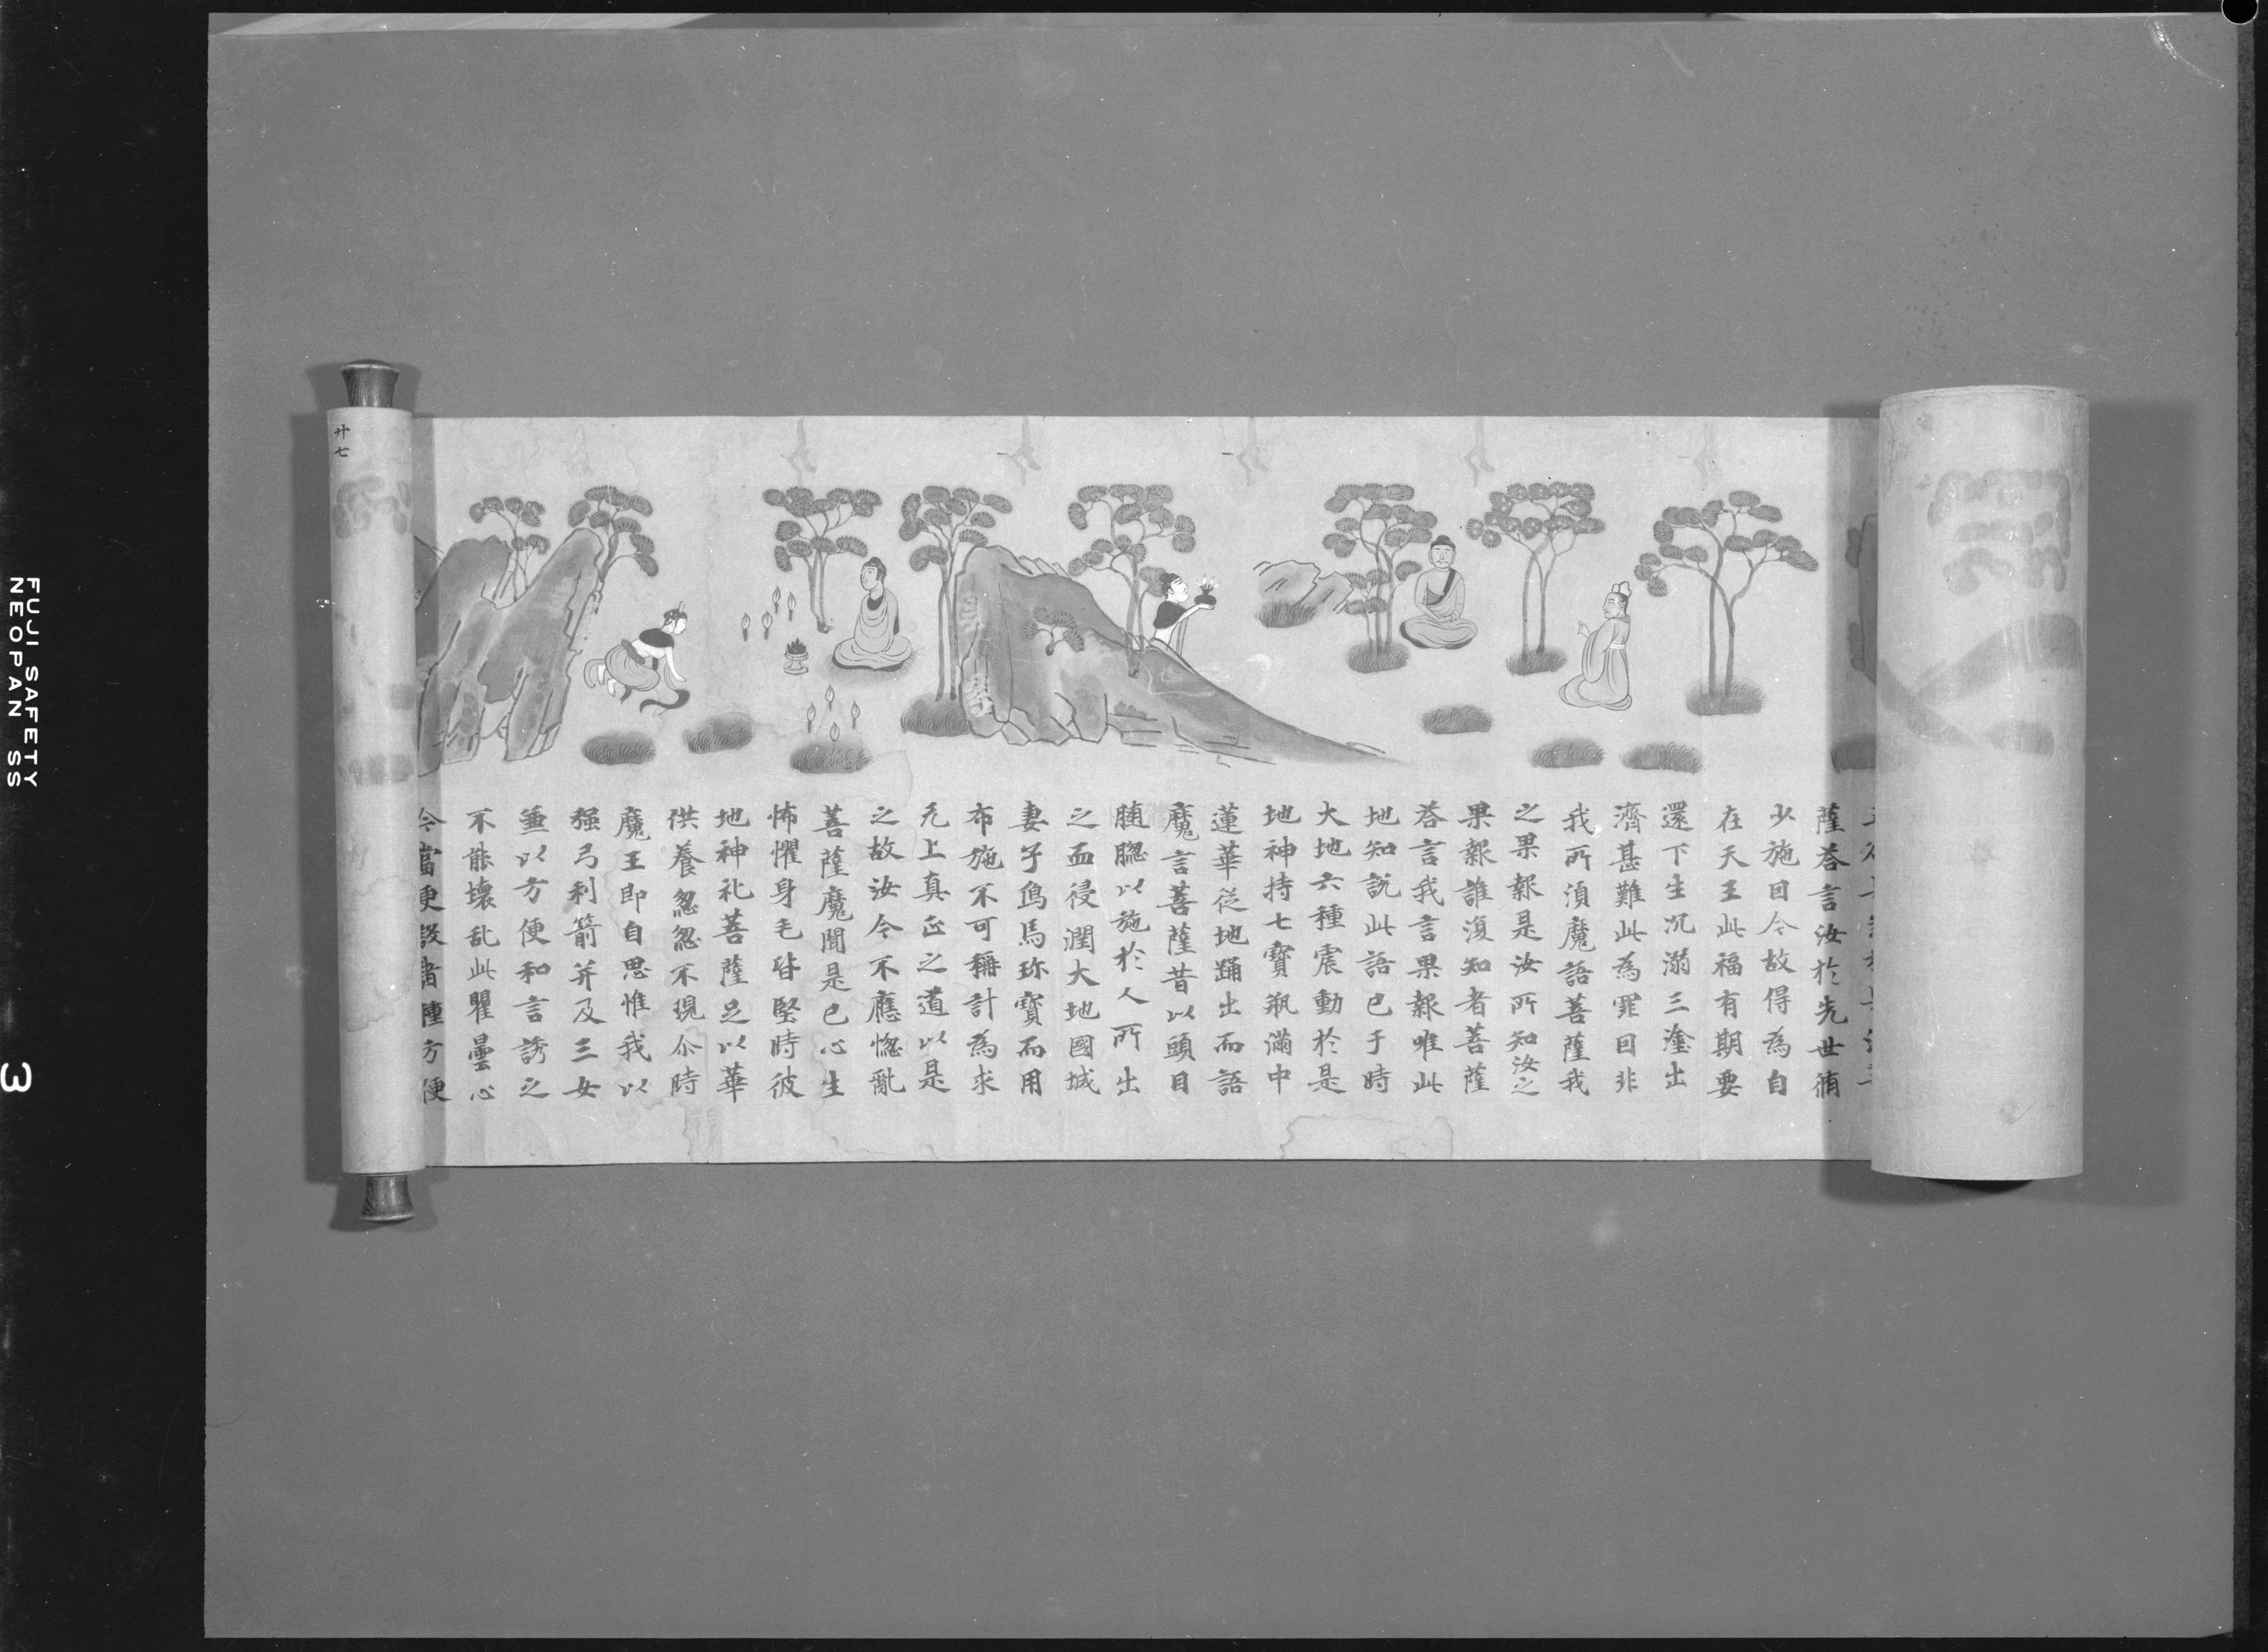 薩荅言汝於先世脩
少施因今故得為自
在天王此福有期要
還下生沉溺三塗出
濟甚難此為罪因非
我所湏魔語菩薩我
之果報是汝所知汝之
果報誰復知者菩薩
荅言我言果報唯此
地知說此語已于時
大地六種震動於是
地神持七寶瓶滿中
蓮華從地踊出而語
魔言菩薩昔以頭目
髓𦜝以施於人所出
之血浸潤大地國城
妻子為馬珎寶而用
布施不可稱計為求
无上真正之道以是
之故汝今不應惱亂
菩薩魔聞是已心生
怖懼身毛皆竪時彼
地神礼菩薩足以華
供養忽忽不現尒時
魔王即自思惟我以
强弓利箭并及三女
兼以方便和言誘之
不能壞乱此瞿曇心
今當更設諸種方便
廿七
FUJI SAFETY
NEOPAN SS
3